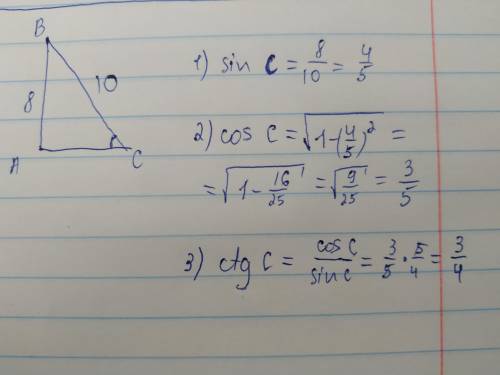 B
8
10
A
C
1) sin C = 8/10 = 4/5
2) cos C = √(1-(4/5)²) =
= √(1 - 16/25) = √(9/25) = 3/5
3) ctg C = cos C/sin C = 3/5 · 5/4 = 3/4